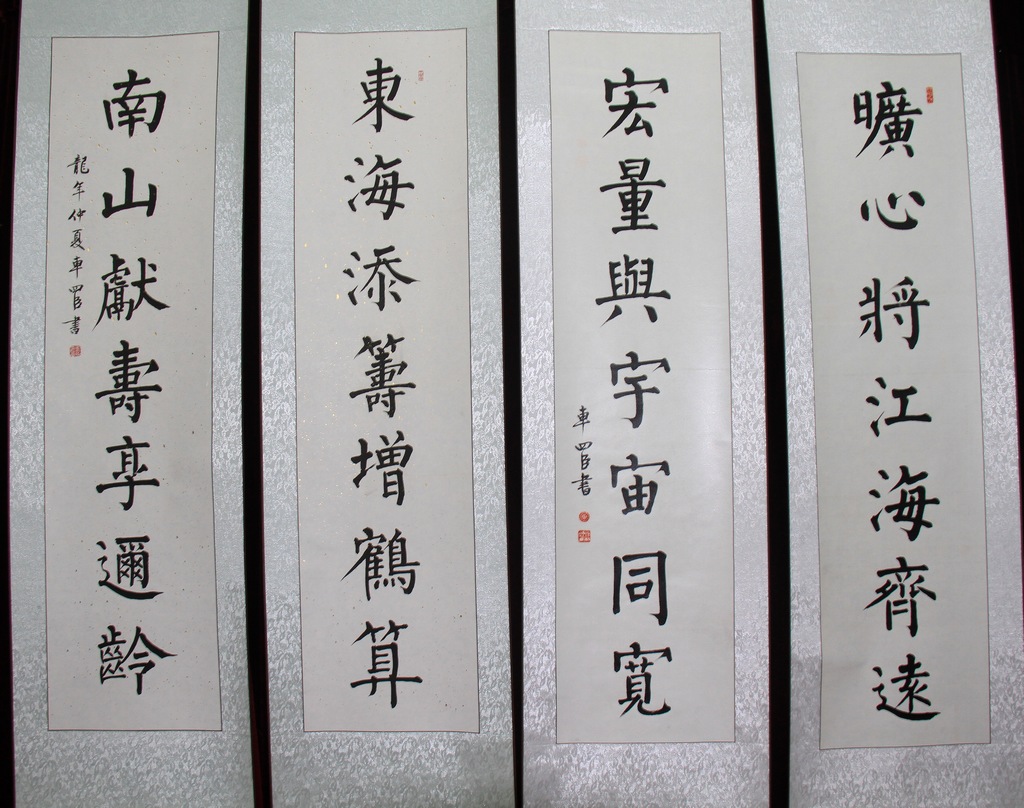 曠心將江海齊遠
宏量與宇宙同寬
車四臣書
東海添籌增鶴算
南山獻壽享邇齡
龍年仲夏車四臣書